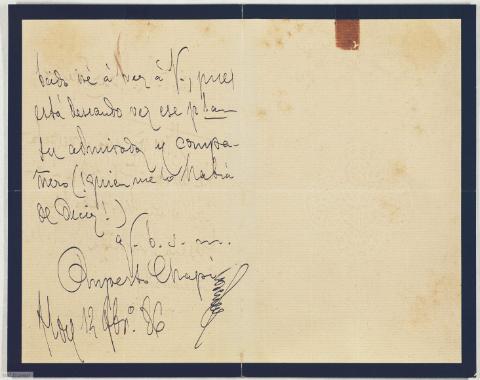 baido iré á ver á V., pues
está deseando ver ese plan
su admirador y compa-
ñero (¡quien me lo había
de decir!)
q. b. s. m.
Ruperto Chapí
12 86